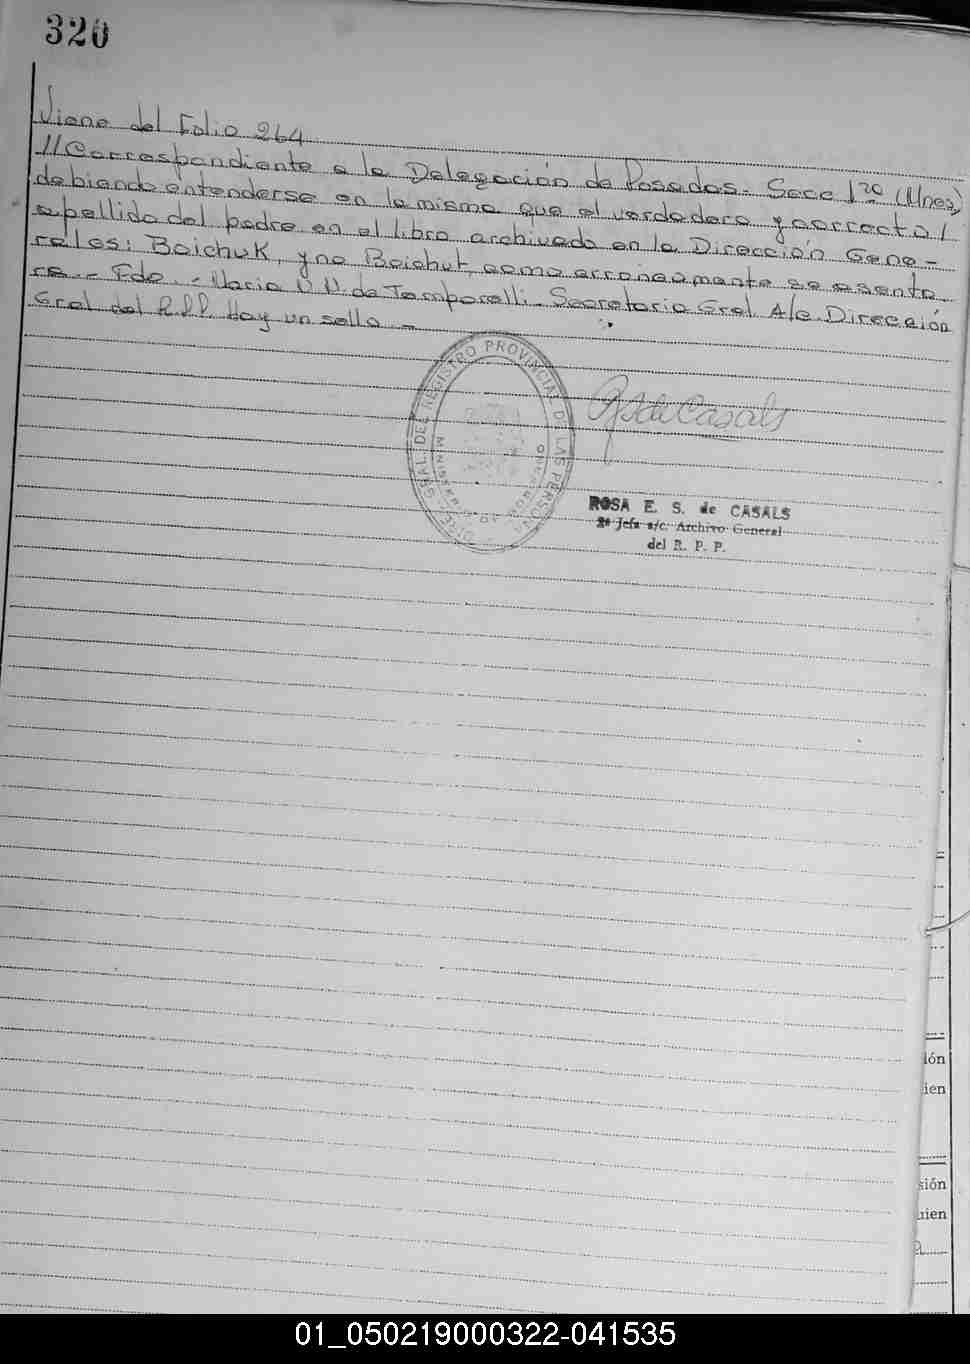 320
Viene del Folio 264
//Correspondiente a la Delegación de Posadas. Secc 1ra (Mnes)
debiendo entenderse en la misma que el verdadero y correcto/
apellido del padre en el libro archivado en la Dirección Gene-
ral es: Boichuk, y no Boichut, como erroneamente se asenta
ra.- Fdo.- María N. de Temporelli - Secretaria Gral A/c. Dirección
Gral del R.P.P. Hay un sello.-
DIREC. GRAL. DEL REGISTRO PROVINCIAL DE LAS PERSONAS
de Casals
ROSA E. S. de CASALS
2ª Jefa a/c. Archivo General
del R. P. P.
ión
ien
sión
uien
01_050219000322-041535